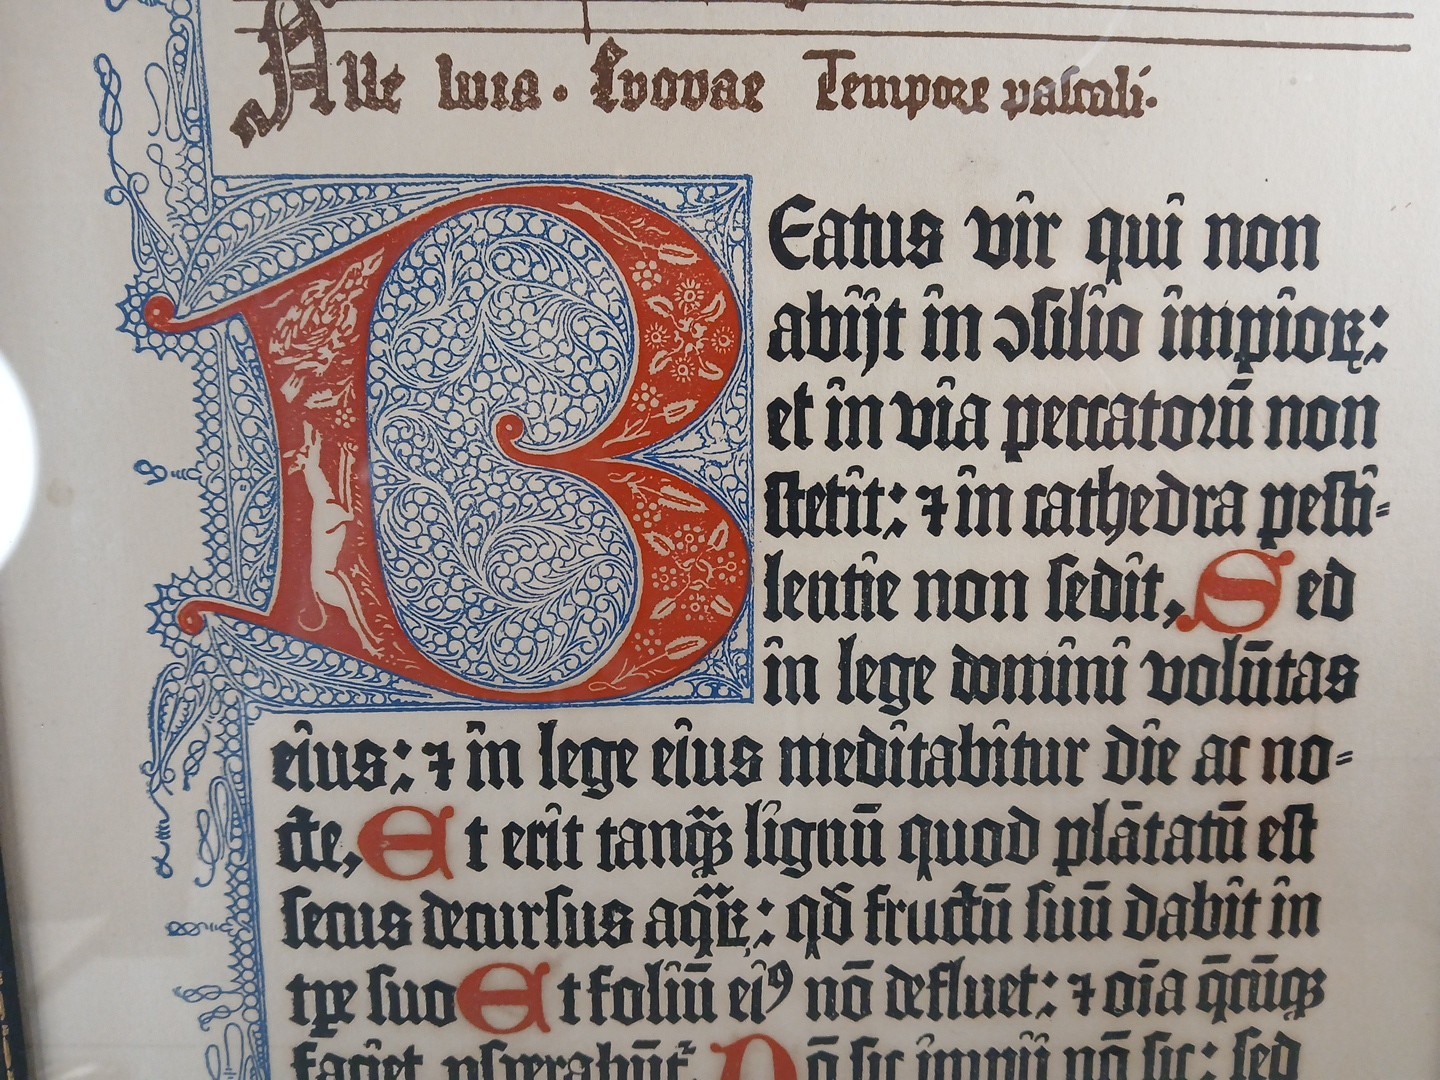 Alle luia. Euouae Tempore pascali.
BEatus vir qui non
abijt in ꝯsilio impioꝝ:
et in via peccatoꝝū non
stetit: ⁊ in cathedra pesti-
lentie non sedit, Sed
in lege domini volūtas
eius: ⁊ in lege eius meditabitur die ac no-
cte, Et erit tanqᷓꝫ lignū quod plātatū est
secus decursus aqᷓꝝ: qđ fructū suū dabit in
tꝑe suo Et foliū eiꝰ nō defluet: ⁊ oīa q̄cūqꝫ
faciet ꝓsperabūtᷣ, Nō sic impii nō sic: sed